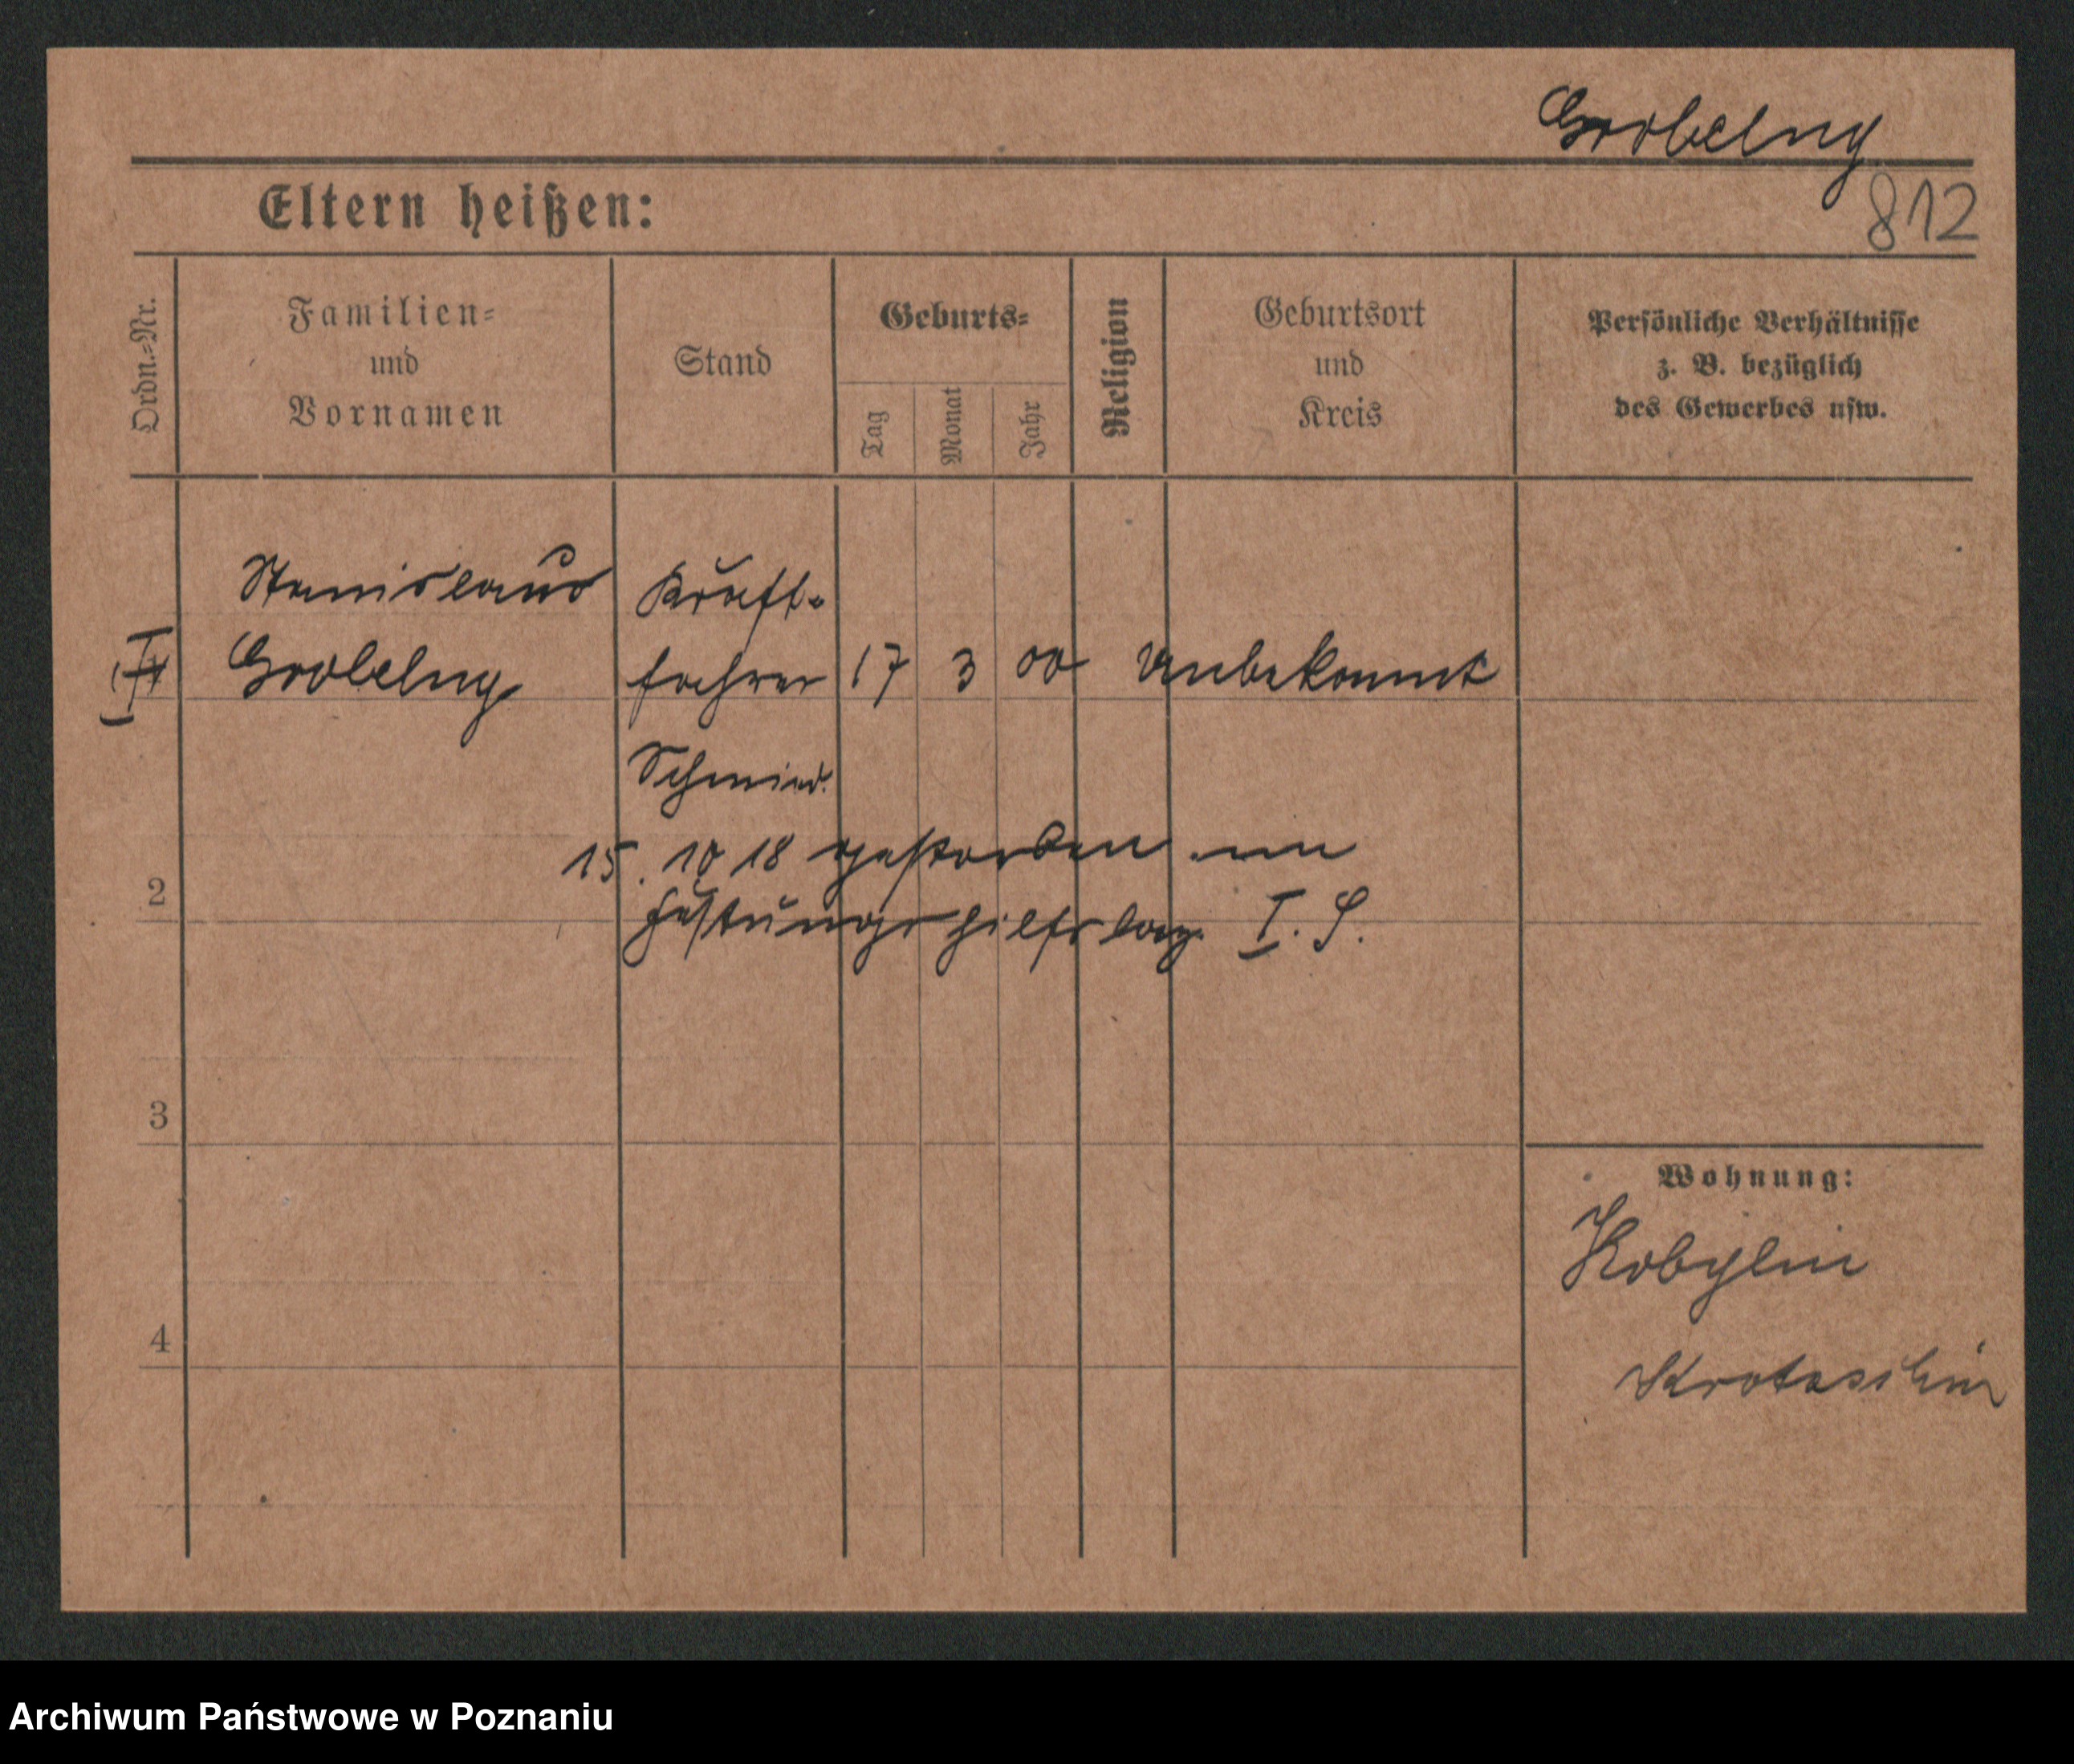 Grobelny
812
Eltern heißen:
Ordn.=Nr.
Familien=
und
Vornamen
Stand
Geburts=
Tag
Monat
Jahr
Religion
Geburtsort
und
Kreis
Persönliche Verhältnisse
z. B. bezüglich
des Gewerbes usw.
Stanislaus Kraft-
Grobelny fahrer 17 3 00 Unbekannt
Schmied.
15. 10 18 gestorben im
2
Festungshilfslaz. I. S.
3
Wohnung:
Kobylin
4
Krotoschin
Archiwum Państwowe w Poznaniu